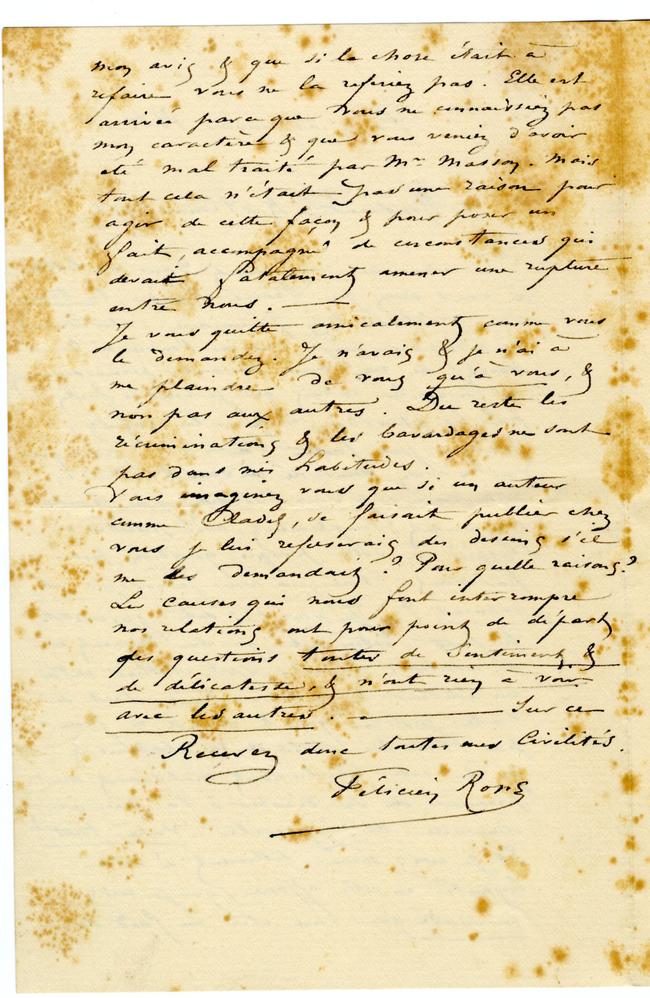 mon avis & que si la chose était à
refaire vous ne la referiez pas. Elle est
arrivée parce que vous ne connaissiez pas
mon caractère & que vous veniez d'avoir
été mal traité par Mr Masson. Mais
tout cela n'était pas une raison pour
agir de cette façon & pour poser un
fait, accompagné de circonstances qui
devait fatalement amener une rupture
entre nous. —
Je vous quitte amicalement comme vous
le demandez. Je n'avais & je n'ai à
me plaindre de vous qu'à vous, &
non pas aux autres. Du reste les
récriminations & les bavardages ne sont
pas dans mes habitudes.
Vous imaginez vous que si un auteur
comme Cladel, se faisait publier chez
vous je lui refuserais des dessins s'il
me les demandait? Pour quelle raison?
Les causes qui nous font interrompre
nos relations ont pour point de départ
des questions toutes de sentiment &
de délicatesse, & n'ont rien à voir
avec les autres. — Sur ce
Recevez donc toutes mes Civilités.
Félicien Rops